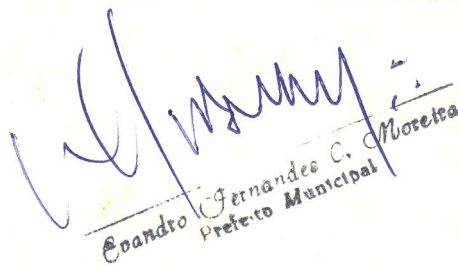 Evandro Fernandes C. Moreira
Prefeito Municipal